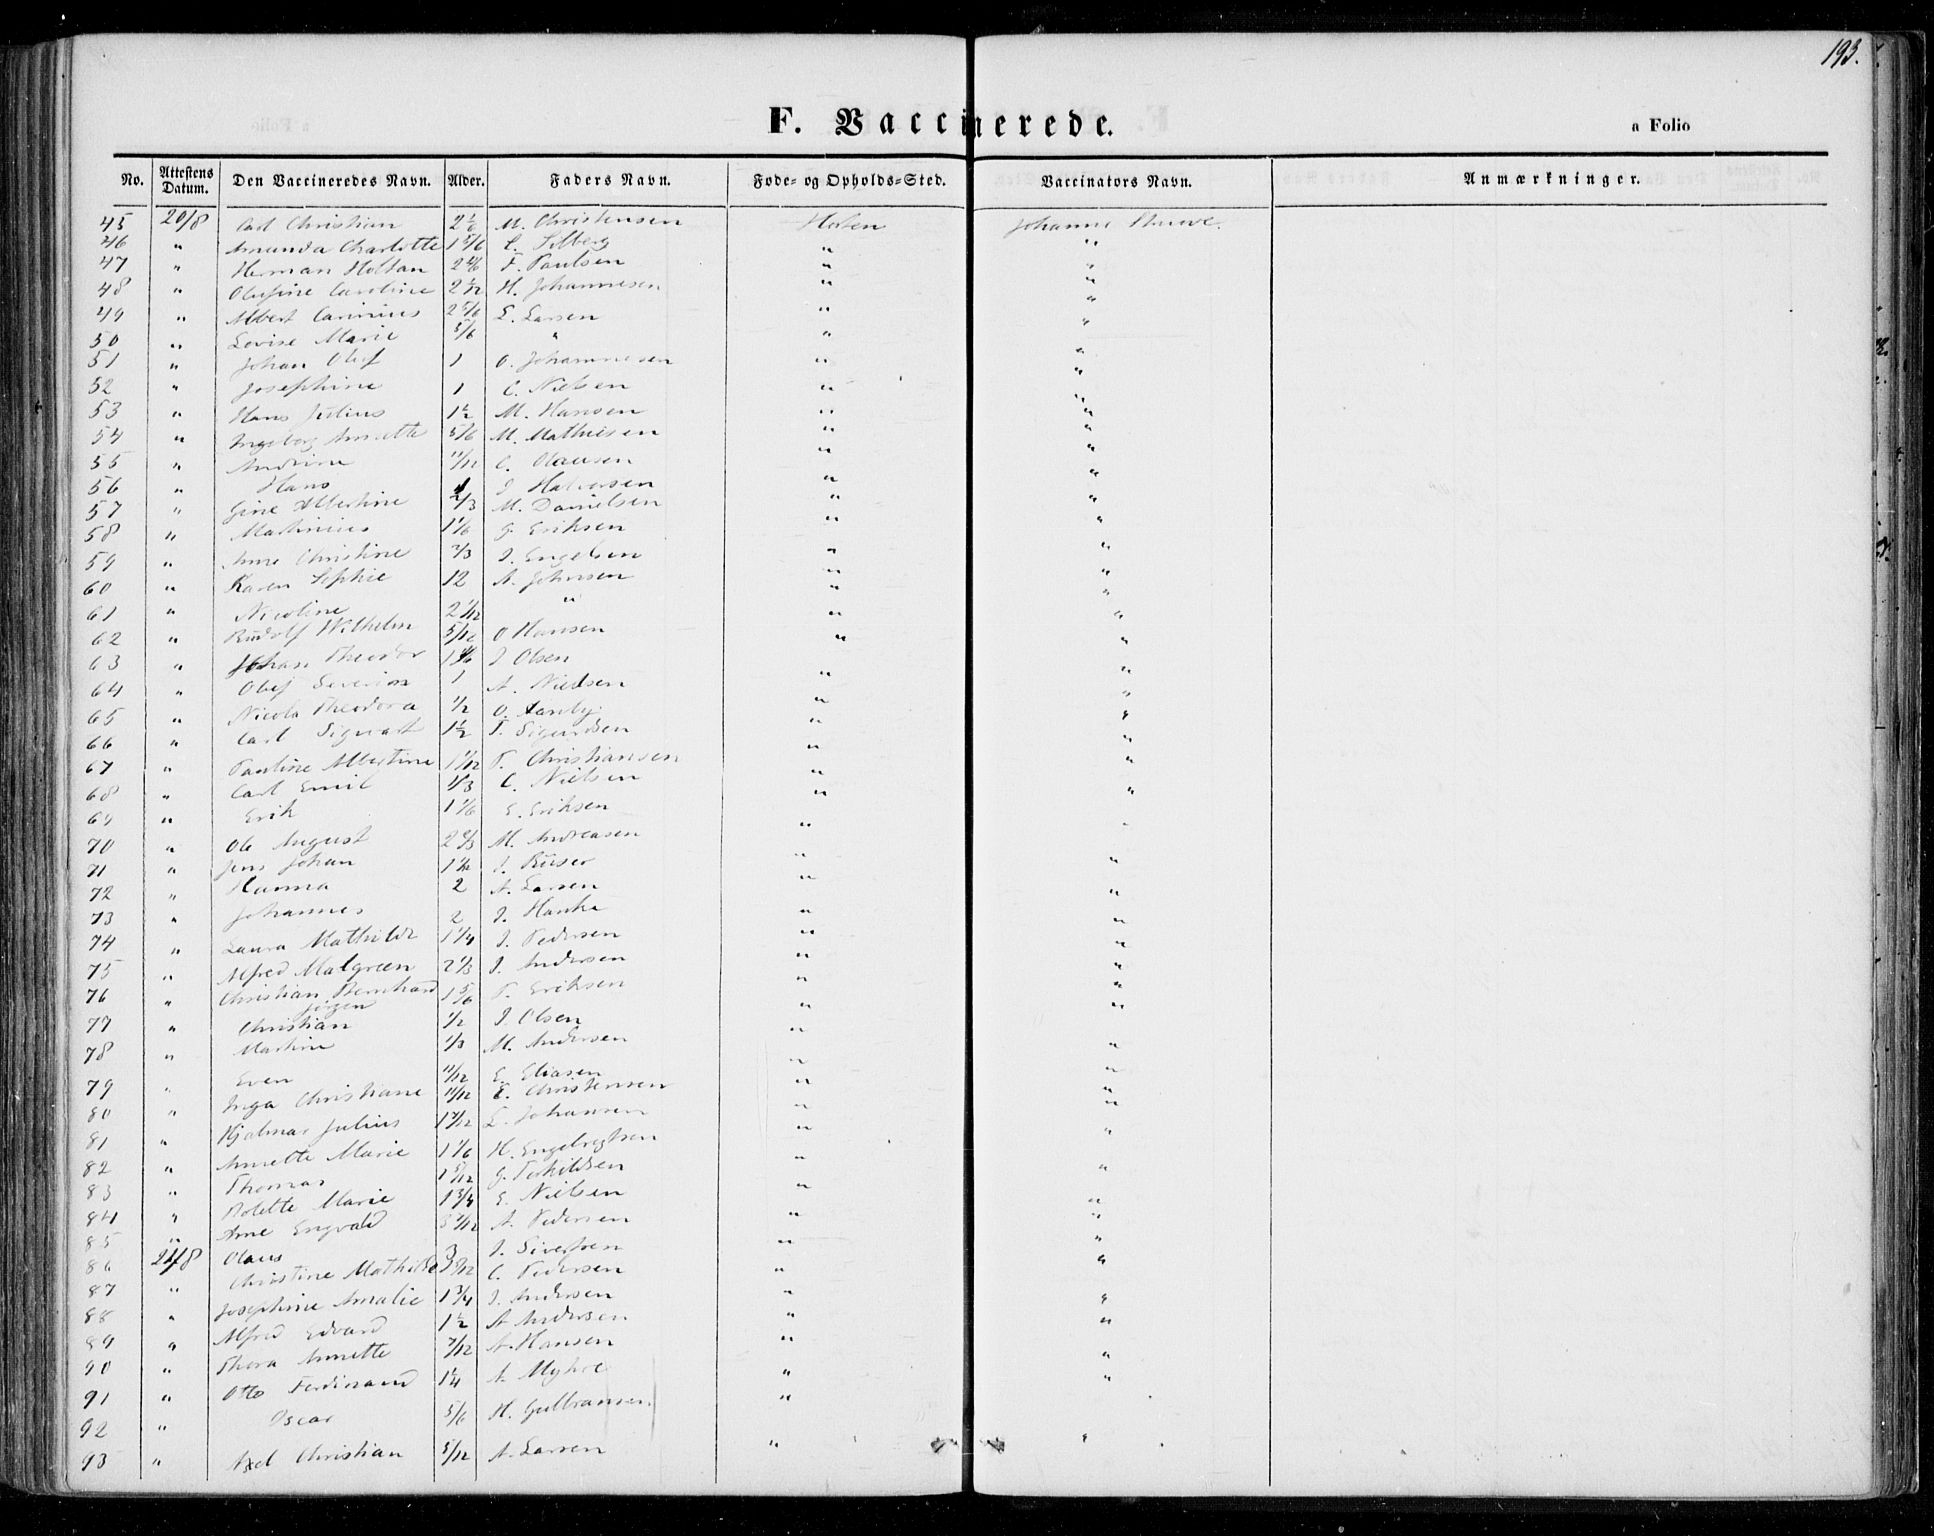 193.
F. Vaccinerede.
a Folio
No. Attestens Datum. Den Vaccineredes Navn. Alder. Faders Navn. Føde- og Opholds-Sted. Vaccinators Navn. Anmærkninger.
45 20/8 Carl Christian M. Christensen Holen Johanne
46 " Amanda Charlotte 1 5/6 " "
47 " Herman Holtan F. Paulsen " "
48 " Olufine Caroline H. Johannesen " "
49 " Albert Carinius 2 5/6 L. Larsen " "
50 " Lovise Marie 5/6 " " "
51 " Johan Oluf 1 O. Johannesen " "
52 " Josephine 1 C. Nielsen " "
53 " Hans Julius 1 1/2 M. Hansen " "
54 " Ingeborg Annette 5/6 M. Mathiesen " "
55 " Andrine 11/12 C. Clausen " "
56 " Hans J. Halvorsen " "
57 " Gine Albertine 2/3 M. Danielsen " "
58 " Martinius 1 1/6 G. Eriksen " "
59 " Anne Christine 2/3 J. Engelsen " "
60 " Karen Sophie 12 A. Johnsen " "
61 " Nicoline 2 1/12 " " "
62 " Rudolf Wilhelm 5/12 O Hansen " "
63 " Johan Theodor J Olsen " "
64 " Oluf Severin 1 A. Nielsen " "
65 " Nicola Theodora 1/2 O. " "
66 " Carl Sigvart 1 1/2 T. Sigurdsen " "
67 " Pauline Albertine 1 1/12 P. Christiansen " "
68 " Carl Emil 1/3 C. Nielsen " "
69 " Erik 1 1/6 E. Eriksen " "
70 " Ole August 2 2/3 M. Andreasen "
71 " Jens Johan J. " "
72 " Hanna 2 A. Larsen " "
73 " Johannes 2 J. Hanke " "
74 " Laura Mathilde 1 1/4 J. Pedersen " "
75 " Alfred Malgreen 2 1/3 J. Andersen " "
76 " Christian Bernhard 1 5/6 P. Eriksen " "
Jørgen
77 " Christian 1/2 J. Olsen " "
78 " Martine 1/3 M. Andersen " "
Even 11/12 E. Eliasen " "
79 " Inga Christiane 11/12 E. Christensen " "
80 " Hjalmar Julius L. Johansen " "
81 " Annette Marie 1 1/6 H. Engebrgtsen " "
82 " Thomas 1 5/12 G. Terkildsen " "
83 " Bolette Marie 1 3/4 E. Nielsen " "
84 " Arne Engvald A. Pedersen " "
85 " Olaus 3 J. Sivertsen " "
86 24/8 Christine Mathilde C. Pedersen " "
87 " Josephine Amalie 1 3/4 J. Andersen " "
88 " Alfred Edvard 1 1/2 A Andersen " "
89 " Thora Annette 7/12 A. Hansen " "
90 " Otto Ferdinand 1 1/4 A. Myhre " "
91 " Oscar 5/6 H. Gulbransen "
92 "
93 " Axel Christian 5/12 A. Larsen " "